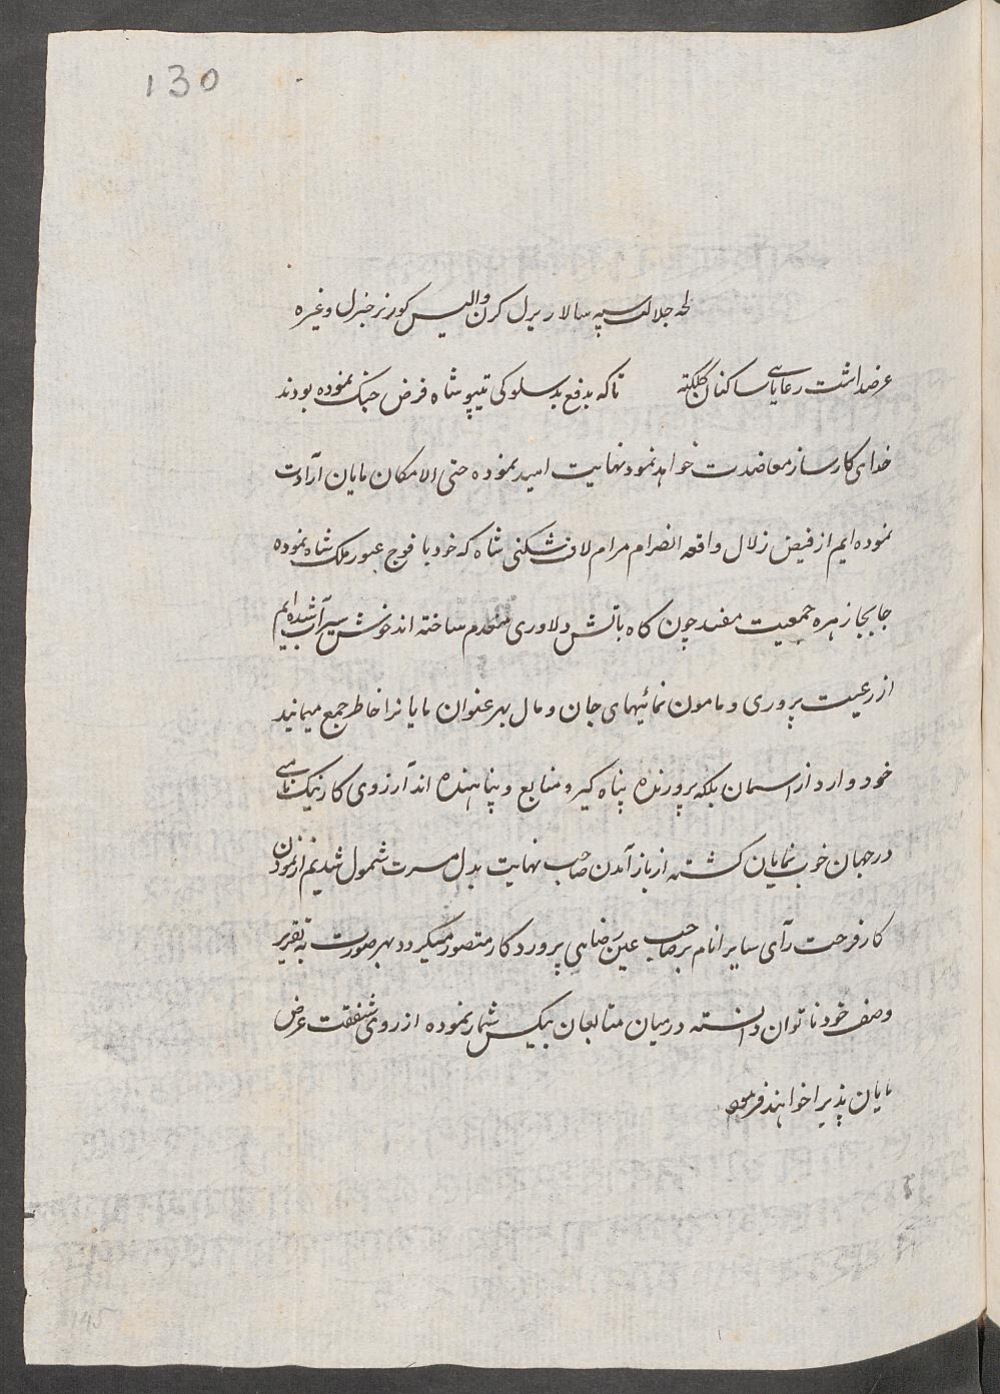 130
جلالت سپه سالار یرل کرن والیس کورنر جنرل وغیره
عرضداشت رعایای ساکنان کلکته تا که بدفع بدسلوکی تیپو شاه فرض جنک نموده بودند
خدای کارساز معاضدت خواهد نمود نهایت امید نموده حتی الامکان مایان ارادت
نموده ایم از فیض زلال واقعه انصرام مرام لاف شکنی شاه که خود با فوج عبور ملک شاه نموده
جابجا زهره جمعیت مفسد چون کاه باتش دلاوری منعدم ساخته اند خوش سیرآب شده ایم
از رعیت پروری و مامون نمائیهای جان و مال بهر عنوان مایانرا خاطر جمع میمانید
خود وارد از اسمان بلکه پرورنده پناه کیر و متابع و پناهنده اند آرزوی کار نیک نامی
در جهان خوب نمایان کشته از باز آمدن صاحب نهایت بدل مسرت شمول شدیم از نمودن
کار فرحت رآی سایر انام بر صاحب عین رضاهی پروردکار متصور میکردد بهر صورت به تقریر
وصف خود ناتوان دانسته در میان متابعان بیکس شمار نموده از روی شفقت عرض
مایان پذیرا خواهند فرمود
145